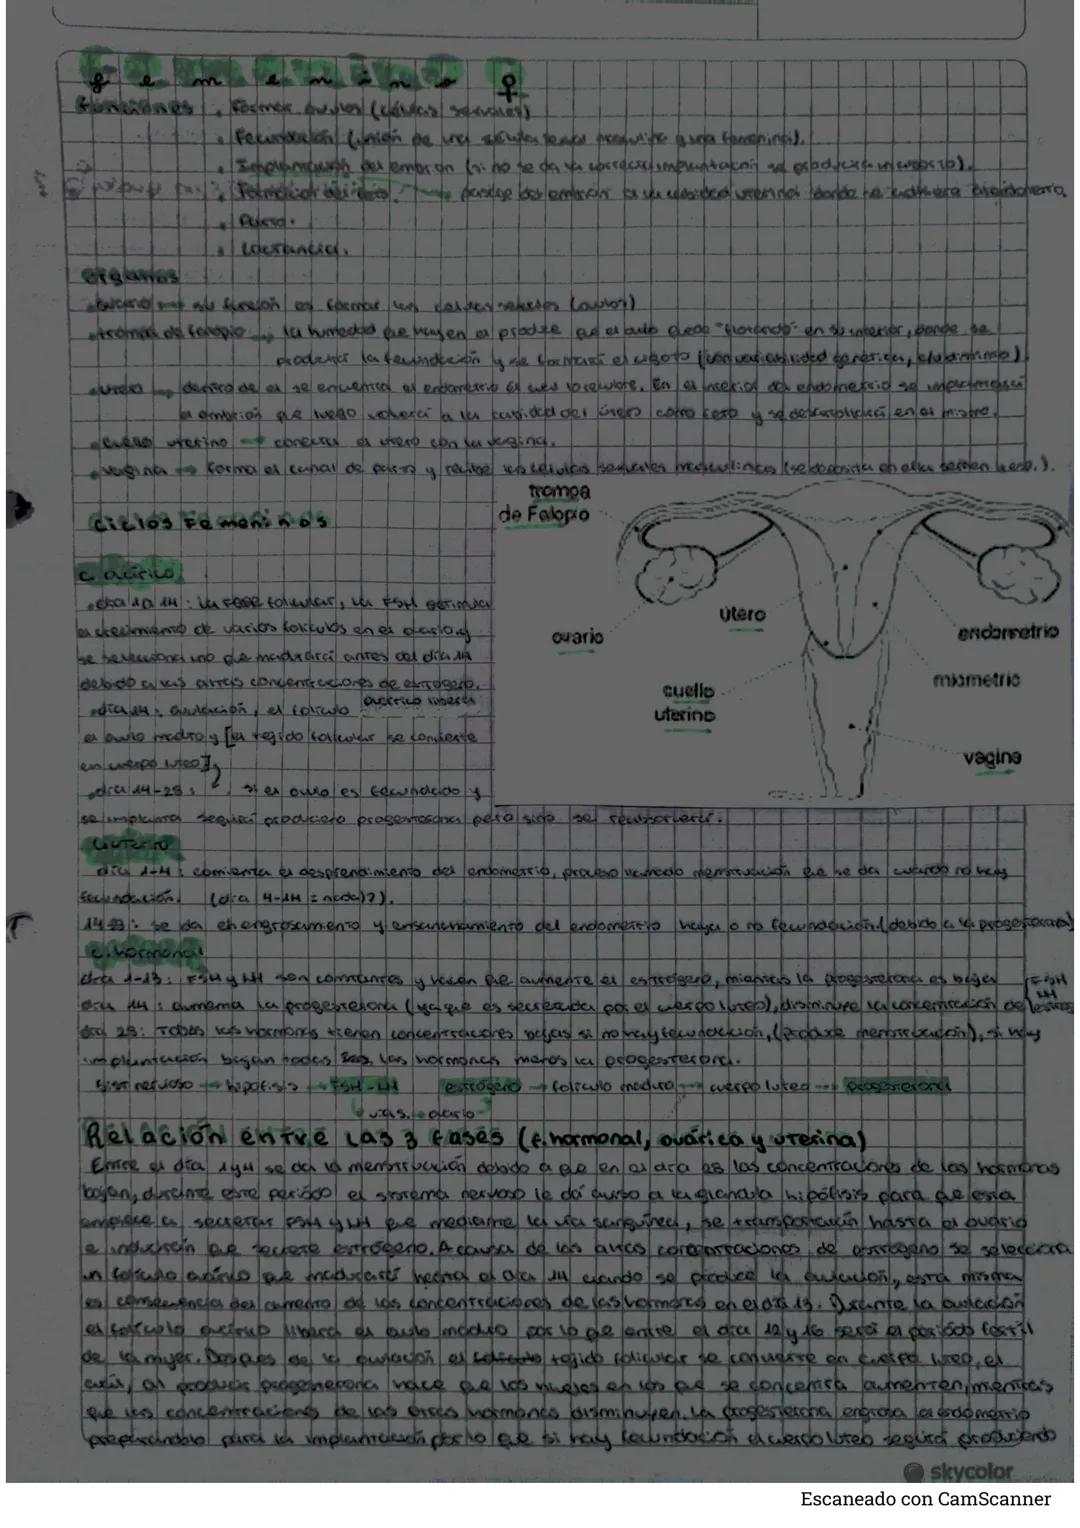 femenino ♀
funciones . Formar óvulos (células sexuales)
. Fecundación (unión de una célula sexual masculina y una femenina).
. Implantación del embrión (si no se da la correcta implantación se producirá un aborto).
. Formación del feto. → pasaje del embrión a la cavidad uterina donde se
. Parto.
. Lactancia.
órganos
. ovario → su función es formar las células sexuales (óvulos)
. trompa de falopio → la humedad que hay en el produce que el óvulo quede "flotando" en su interior, donde se
producirá la fecundación y se formará el cigoto (con variabilidad genética, )
. útero → dentro de el se encuentra el endometrio el cual lo recubre. En el interior del endometrio se implantará
el embrión que luego volverá a la cavidad del útero como feto y se desarrollará en el mismo.
. cuello uterino → conecta el útero con la vagina.
. vagina → forma el canal de parto y recibe las células sexuales masculinas (se deposita en ella semen ).
trompa
de Falopio
útero
ovario
endometrio
miometrio
cuello
uterino
vagina
Ciclos Femeninos
c. ovárico
. día 1 a 14: la fase folicular, la FSH estimula
el crecimiento de varios folículos en el ovario y
se selecciona uno que madurará antes del día 14
debido a las altas concentraciones de estrógeno.
. día 14: ovulación, el folículo ovárico libera
el óvulo maduro y [el tejido folicular se convierte
en cuerpo lúteo].
. día 14-28: si el óvulo es fecundado y
se implanta seguirá produciendo progesterona pero sino se reabsorberá.
c. uterino
día 1-4: comienza el desprendimiento del endometrio, proceso llamado menstruación que se da cuando no hay
fecundación. (día 4-14 = nada)?).
14-28: se da el engrosamiento y ensanchamiento del endometrio haya o no fecundación (debido a la progesterona)
c. hormonal
día 1-13: FSH y LH son constantes y hacen que aumente el estrógeno, mientras la progesterona es baja
día 14: aumenta la progesterona (ya que es secretada por el cuerpo lúteo), disminuye la concentración de FSH LH estróg
día 28: Todas las hormonas tienen concentraciones bajas si no hay fecundación, (produce menstruación), si hay
implantación bajan todas las hormonas menos la progesterona.
sist nervioso → hipófisis → FSH-LH estrógeno → folículo maduro → cuerpo lúteo → progesterona
v.s. → ovario
Relación entre las 3 fases (f. hormonal, ovárica y uterina)
Entre el día 1 y 4 se da la menstruación debido a que en el día 28 las concentraciones de las hormonas
bajan, durante este período el sistema nervioso le dá aviso a la glándula hipófisis para que esta
empiece a secretar FSH y LH que mediante la vía sanguínea, se transportarán hasta el ovario
e inducirán que secrete estrógeno. A causa de las altas concentraciones de estrógeno se selecciona
un folículo ovárico que madurará hasta el día 14 cuando se produce la ovulación, esta misma
es consecuencia del aumento de las concentraciones de las hormonas en el día 13. Durante la ovulación
el folículo ovárico libera el óvulo maduro por lo que entre el día 12 y 16 será el período fértil
de la mujer. Después de la ovulación el tejido folicular se convierte en cuerpo lúteo, el
cual, al producir progesterona hace que los niveles en los que se concentra aumenten, mientras
que las concentraciones de las otras hormonas disminuyen. La progesterona engrosa el endometrio
preparándolo para la implantación por lo que si hay fecundación el cuerpo lúteo seguirá produciendo
skycolor
Escaneado con CamScanner